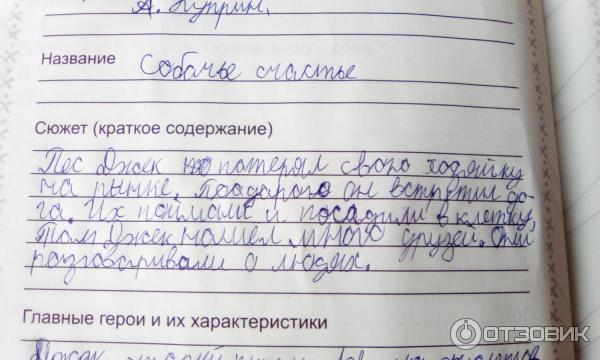 А. Куприн.
Название Собачье счастье
Сюжет (краткое содержание)
Пес Джек потерял свою хозяйку
на рынке. По дороге он встретил до-
га. Их поймали и посадили в клетку.
Там Джек нашел много друзей. Они
разговаривали о людях.
Главные герои и их характеристики
Джек
ОТЗОВИК